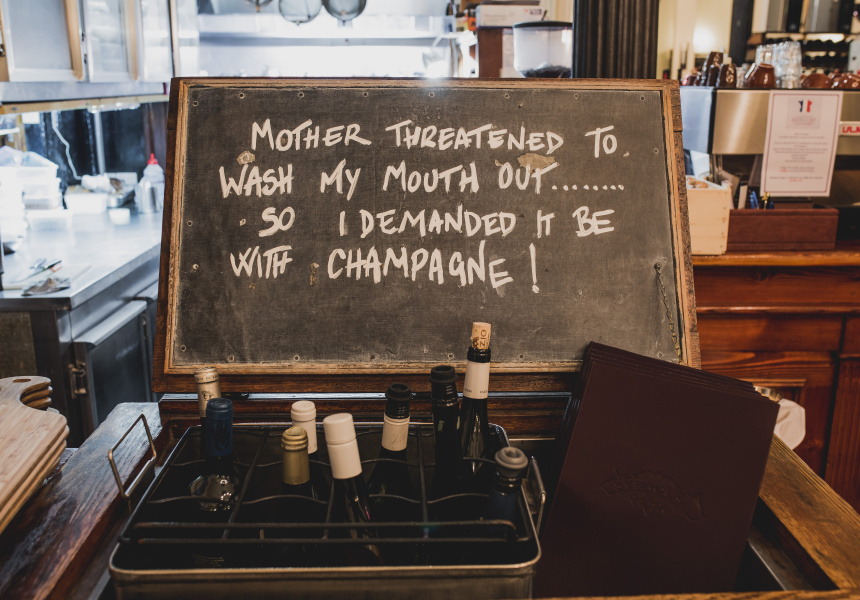 MOTHER THREATENED TO
WASH MY MOUTH OUT........
SO I DEMANDED IT BE
WITH CHAMPAGNE!